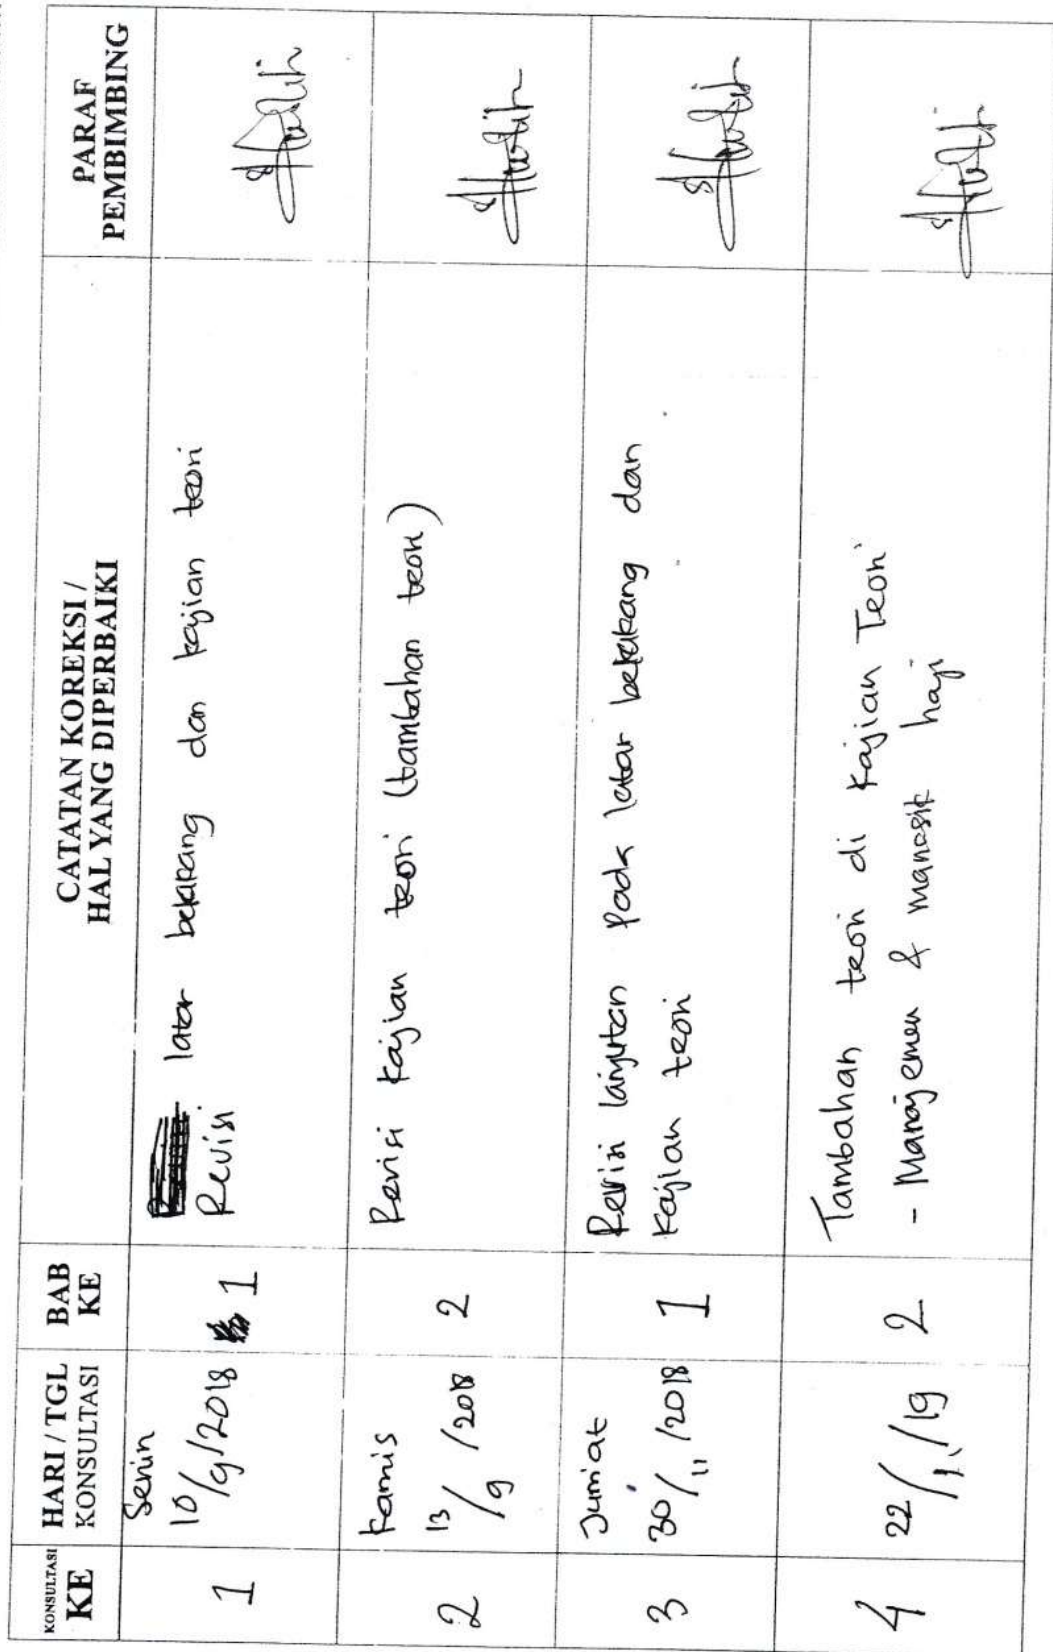 KONSULTASI KE
HARI / TGL KONSULTASI
BAB KE
CATATAN KOREKSI / HAL YANG DIPERBAIKI
PARAF PEMBIMBING
1
Senin
10/9/2018
1
Revisi latar belakang dan kajian teori
2
Kamis
13/9/2018
2
Revisi Kajian teori (tambahan teori)
3
Jum'at
30/11/2018
1
Revisi lanjutan Pada latar belakang dan
Kajian teori
4
22/1/19
2
Tambahan teori di Kajian Teori
- Manajemen & manasik haji